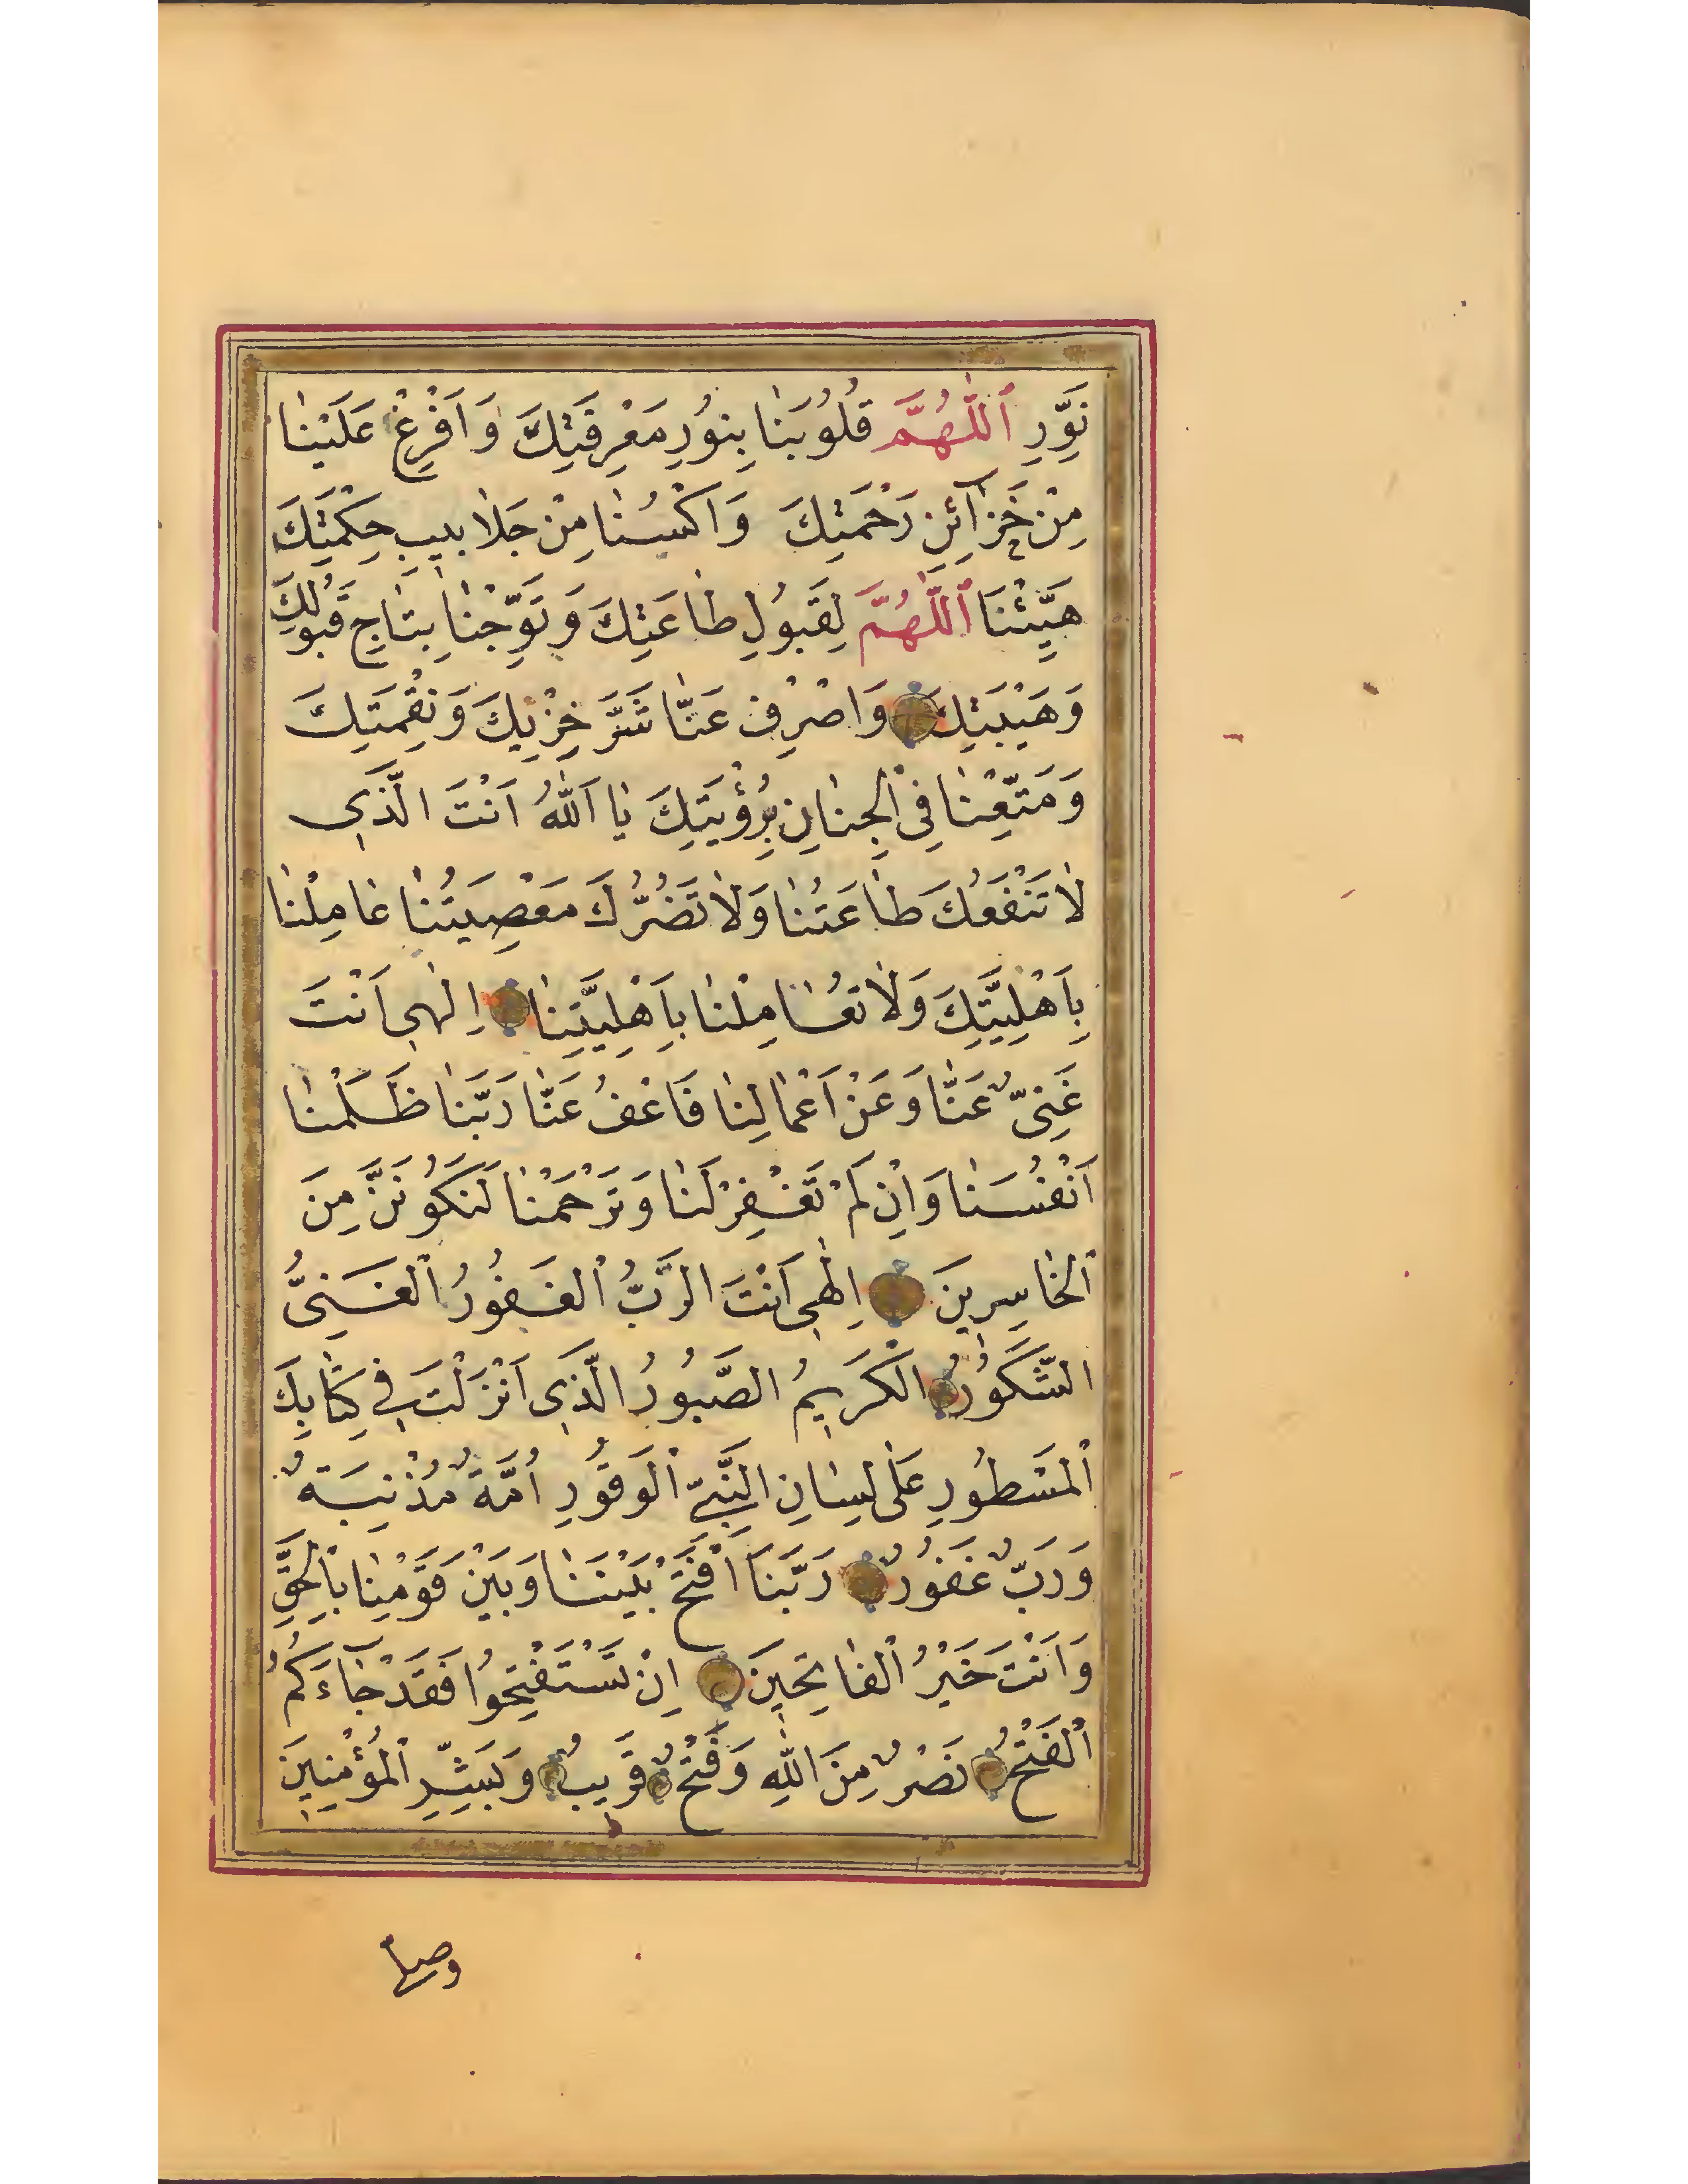 نَوِّرِ اَللّٰهُمَّ قُلُوبَنَا بِنُورِ مَعْرِفَتِكَ وَاَفْرِغْ عَلَيْنَا
مِنْ خَزَآئِنِ رَحْمَتِكَ وَاكْسُنَا مِنْ جَلَابِيبِ حِكْمَتِكَ
هَيِّئْنَا اَللّٰهُمَّ لِقَبُولِ طَاعَتِكَ وَتَوِّجْنَا بِتَاجِ قَبُولِكَ
وَهَيْبَتِكَ وَاصْرِفْ عَنَّا شَرَّ خِزْيِكَ وَنِقْمَتِكَ
وَمَتِّعْنَا فِى الْجِنَانِ بِرُؤْيَتِكَ يَا اَللّٰهُ اَنْتَ الَّذِى
لَا تَنْفَعُكَ طَاعَتُنَا وَلَا تَضُرُّكَ مَعْصِيَتُنَا عَامِلْنَا
بِاَهْلِيَّتِكَ وَلَا تُعَامِلْنَا بِاَهْلِيَّتِنَا اِلٰهِى اَنْتَ
غَنِىٌّ عَنَّا وَعَنْ اَعْمَالِنَا فَاعْفُ عَنَّا رَبَّنَا ظَلَمْنَا
اَنْفُسَنَا وَاِنْ لَمْ تَغْفِرْ لَنَا وَتَرْحَمْنَا لَنَكُونَنَّ مِنَ
اَلْخَاسِرِينَ اِلٰهِى اَنْتَ الرَّبُّ اَلْغَفُورُ اَلْغَنِىُّ
الشَّكُورُ الْكَرِيمُ الصَّبُورُ الَّذِى اَنْزَلْتَ فِى كِتَابِكَ
اَلْمَسْطُورِ عَلَى لِسَانِ النَّبِىِّ اَلْوَقُورِ اُمَّةٌ مُذْنِبَةٌ
وَرَبٌّ غَفُورٌ رَبَّنَا افْتَحْ بَيْنَنَا وَبَيْنَ قَوْمِنَا بِالْحَقِّ
وَاَنْتَ خَيْرُ اَلْفَاتِحِينَ اِنْ تَسْتَفْتِحُوا فَقَدْ جَاءَكُمُ
اَلْفَتْحُ نَصْرٌ مِنَ اللّٰهِ وَفَتْحٌ قَرِيبٌ وَبَشِّرِ اَلْمُؤْمِنِينَ